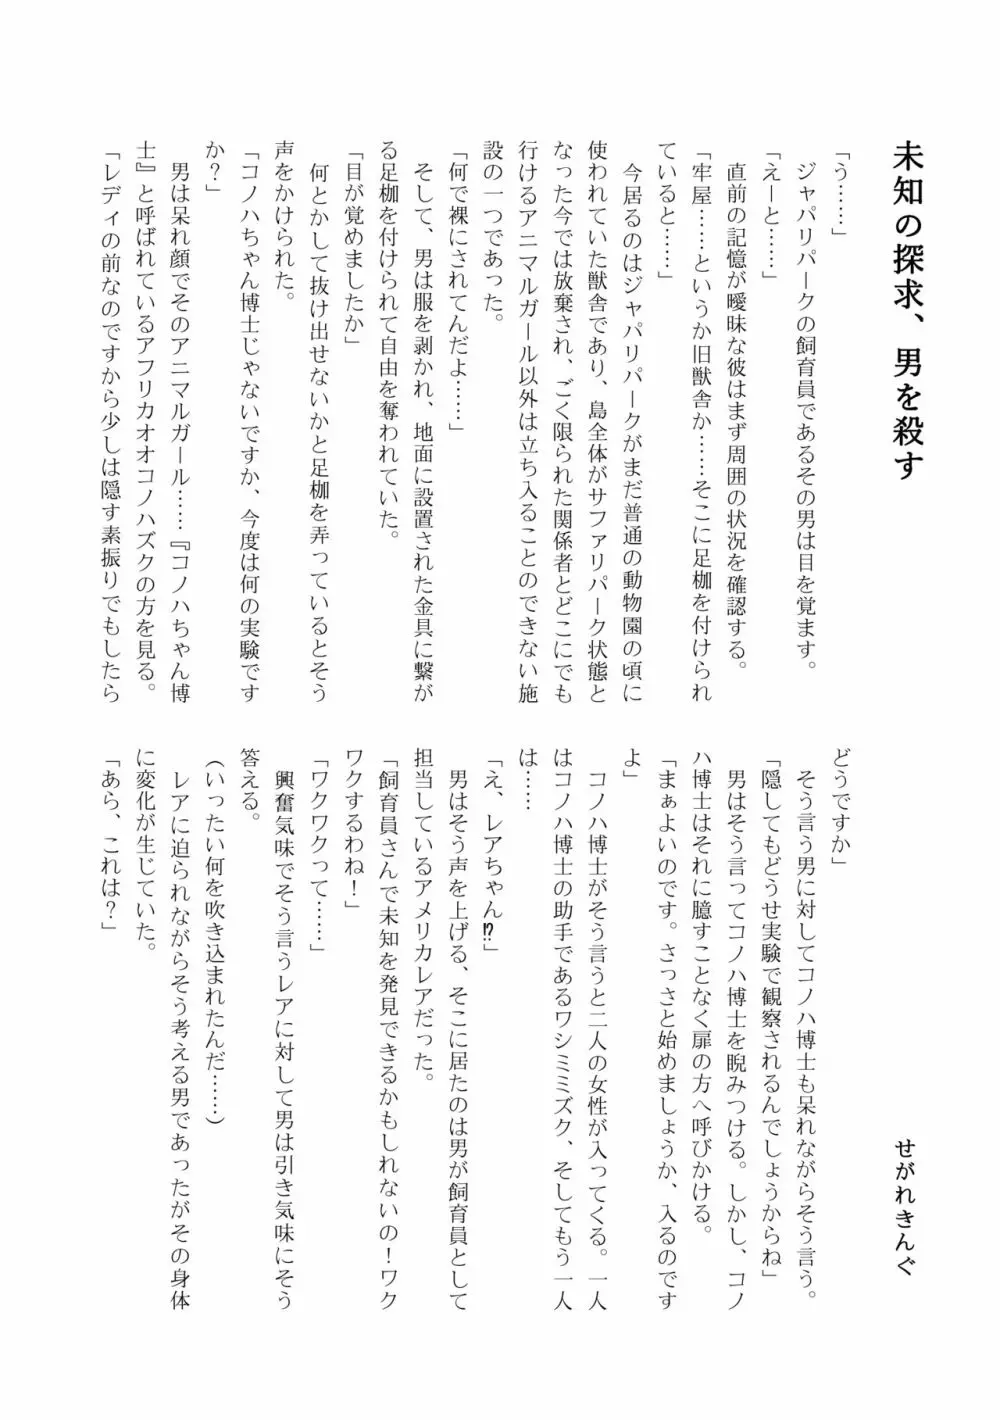 未知の探求、男を殺す
せがれきんぐ
「う……」
　ジャパリパークの飼育員であるその男は目を覚ます。
「えーと……」
　直前の記憶が曖昧な彼はまず周囲の状況を確認する。
「牢屋……というか旧獣舎か……そこに足枷を付けられ
ていると……」
　今居るのはジャパリパークがまだ普通の動物園の頃に
使われていた獣舎であり、島全体がサファリパーク状態と
なった今では放棄され、ごく限られた関係者とどこにでも
行けるアニマルガール以外は立ち入ることのできない施
設の一つであった。
「何で裸にされてんだよ……」
　そして、男は服を剥かれ、地面に設置された金具に繋が
る足枷を付けられて自由を奪われていた。
「目が覚めましたか」
　何とかして抜け出せないかと足枷を弄っているとそう
声をかけられた。
「コノハちゃん博士じゃないですか、今度は何の実験です
か？」
　男は呆れ顔でそのアニマルガール……『コノハちゃん博
士』と呼ばれているアフリカオオコノハズクの方を見る。
「レディの前なのですから少しは隠す素振りでもしたら
どうですか」
　そう言う男に対してコノハ博士も呆れながらそう言う。
「隠してもどうせ実験で観察されるんでしょうからね」
　男はそう言ってコノハ博士を睨みつける。しかし、コノ
ハ博士はそれに臆すことなく扉の方へ呼びかける。
「まぁよいのです。さっさと始めましょうか、入るのです
よ」
　コノハ博士がそう言うと二人の女性が入ってくる。一人
はコノハ博士の助手であるワシミミズク、そしてもう一人
は……
「え、レアちゃん⁉」
　男はそう声を上げる、そこに居たのは男が飼育員として
担当しているアメリカレアだった。
「飼育員さんで未知を発見できるかもしれないの！ワク
ワクするわね！」
「ワクワクって……」
　興奮気味でそう言うレアに対して男は引き気味にそう
答える。
（いったい何を吹き込まれたんだ……）
　レアに迫られながらそう考える男であったがその身体
に変化が生じていた。
「あら、これは？」